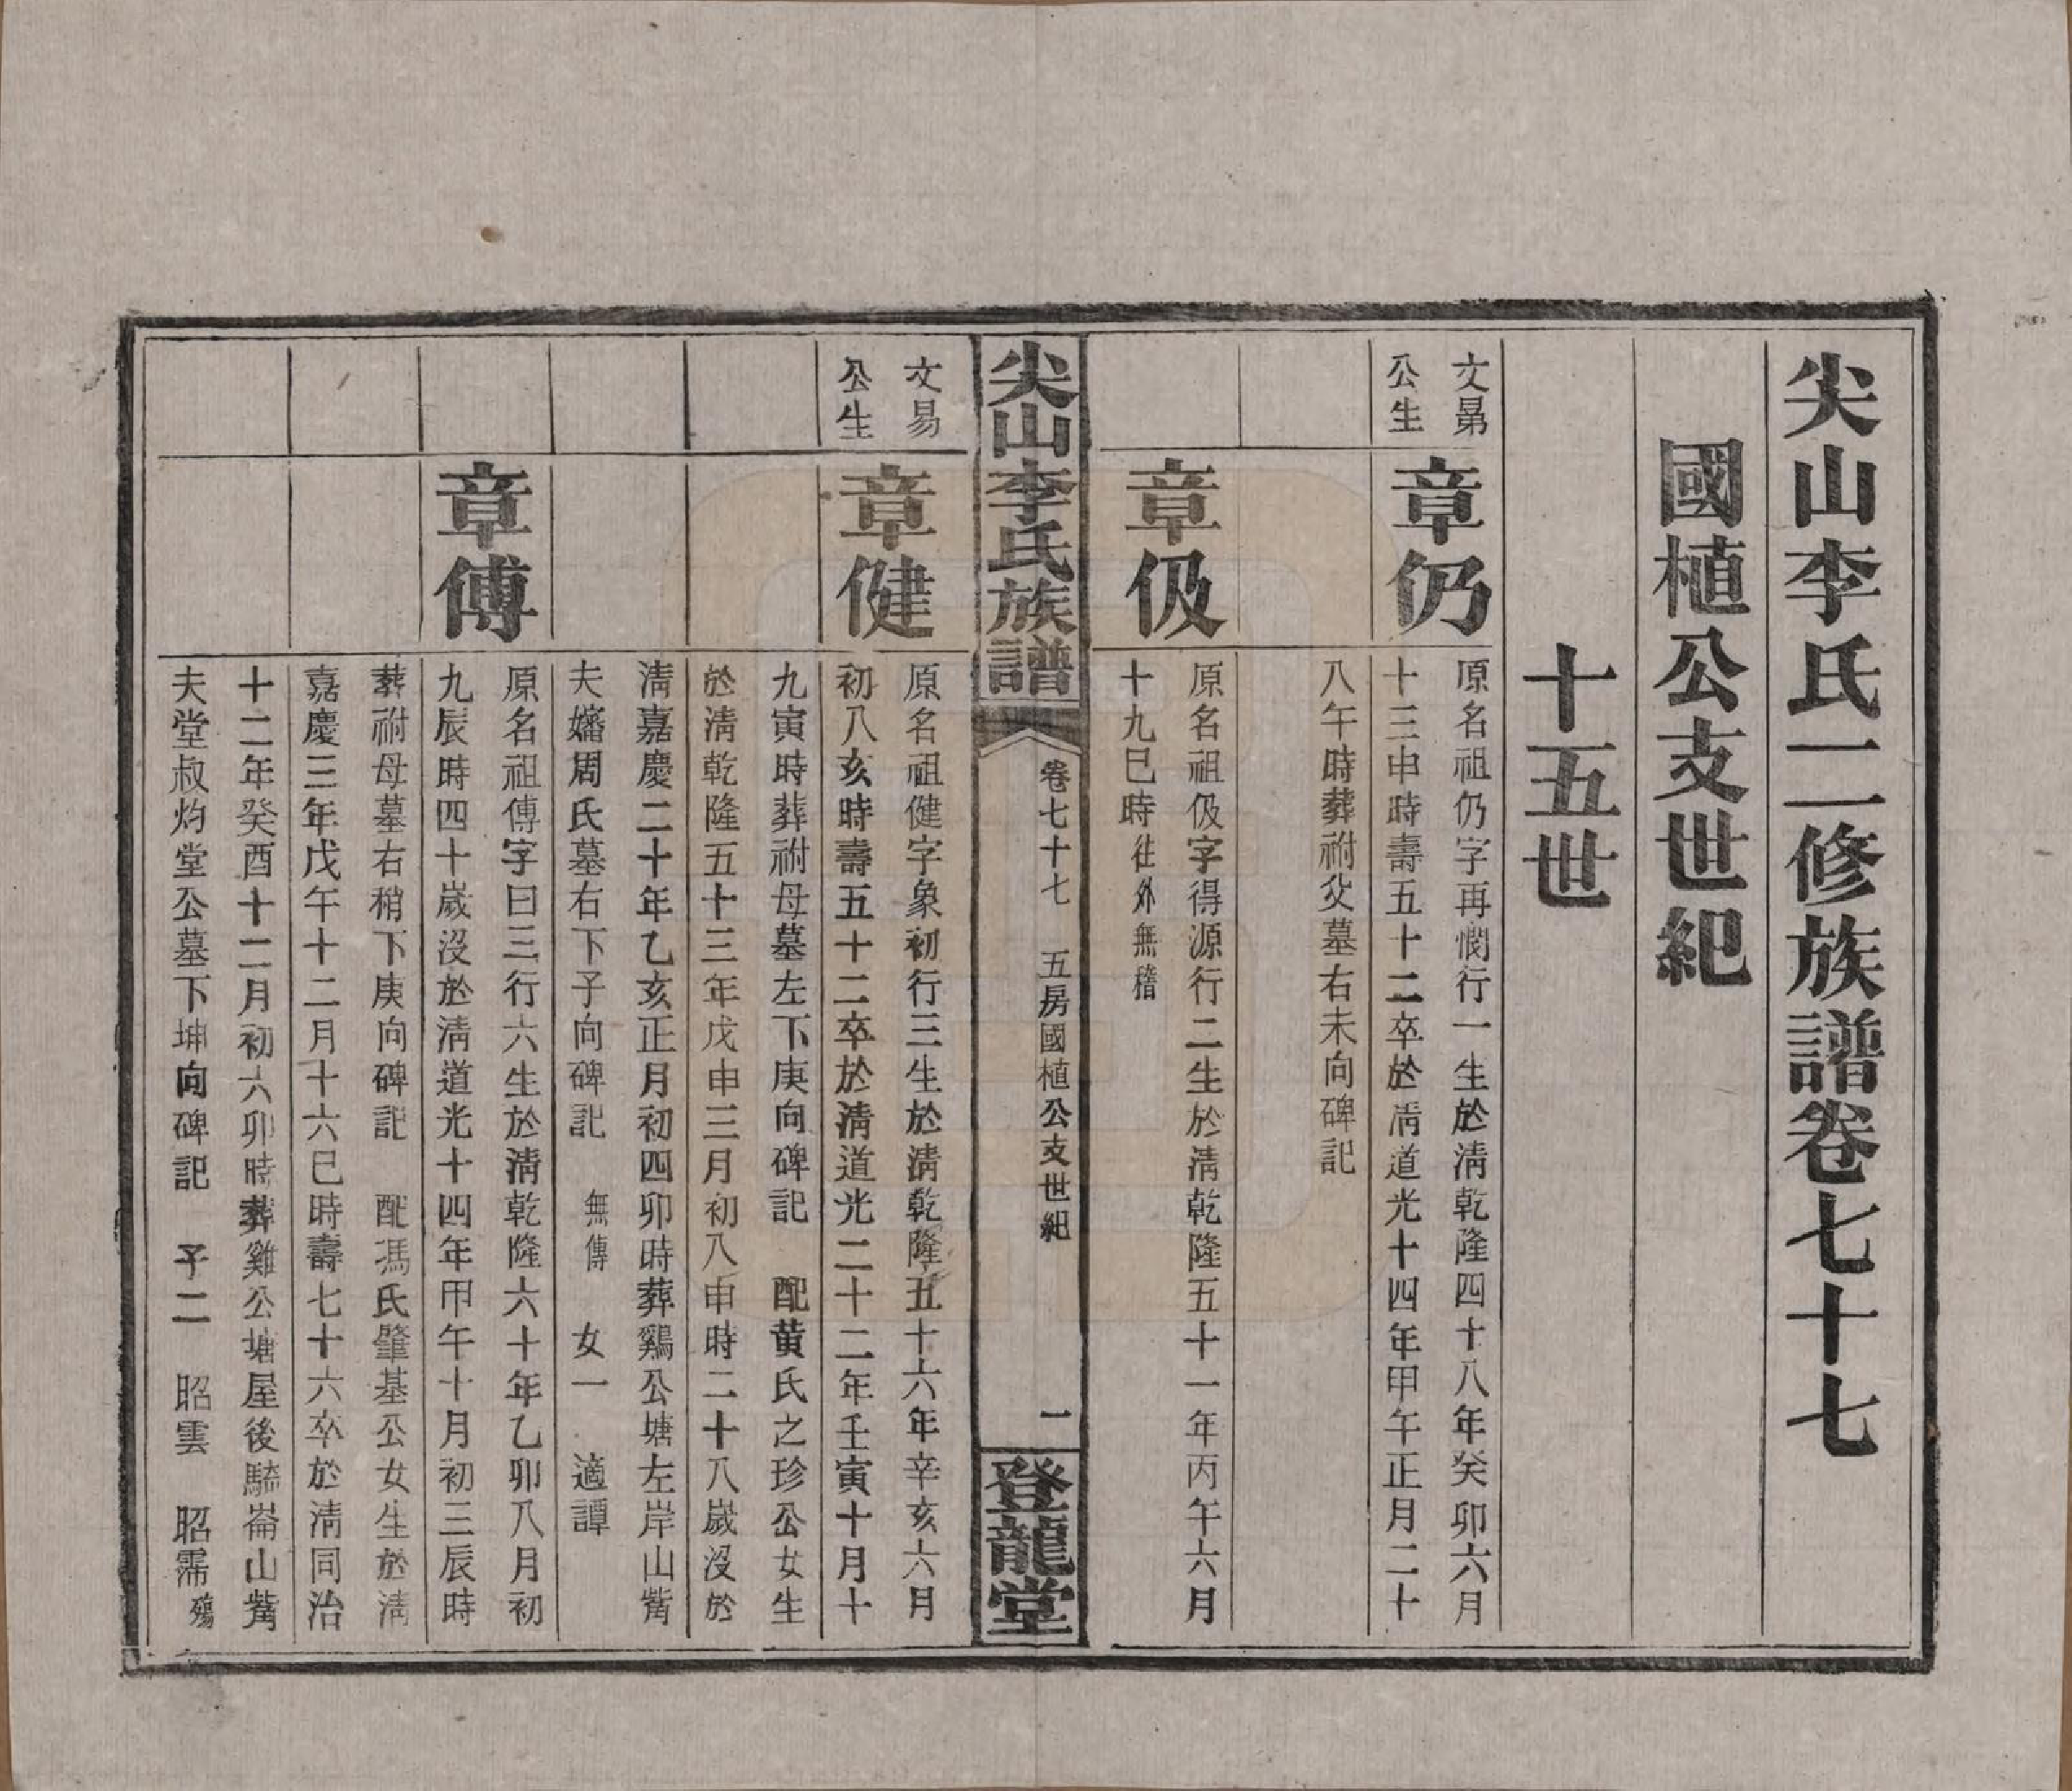 尖山李氏二修族譜卷七十七
國植公支世紀
十五世
文晜
公生
章仍
原名祖仍字再憪行一生於淸乾隆四十八年癸卯六月
十三申時壽五十二卒於淸道光十四年甲午正月二十
八午時葬祔父墓右未向碑記
章伋
原名祖伋字得源行二生於淸乾隆五十一年丙午六月
十九巳時往外無稽
尖山李氏族譜
卷七十七 五房國植公支世紀
一
登龍堂
文易
公生
章健
原名祖健字象初行三生於淸乾隆五十六年辛亥六月
初八亥時壽五十二卒於淸道光二十二年壬寅十月十
九寅時葬祔母墓左下庚向碑記 配黃氏之珍公女生
於淸乾隆五十三年戊申三月初八申時二十八歲沒於
淸嘉慶二十年乙亥正月初四卯時葬鷄公塘左岸山觜
夫嬸周氏墓右下子向碑記 無傳 女一 適譚
章傅
原名祖傅字曰三行六生於淸乾隆六十年乙卯八月初
九辰時四十歲沒於淸道光十四年甲午十月初三辰時
葬祔母墓右稍下庚向碑記 配馮氏肇基公女生於淸
嘉慶三年戊午十二月十六巳時壽七十六卒於淸同治
十二年癸酉十二月初六卯時葬雞公塘屋後騎崙山觜
夫堂叔灼堂公墓下坤向碑記 子二 昭雲 昭霈殤